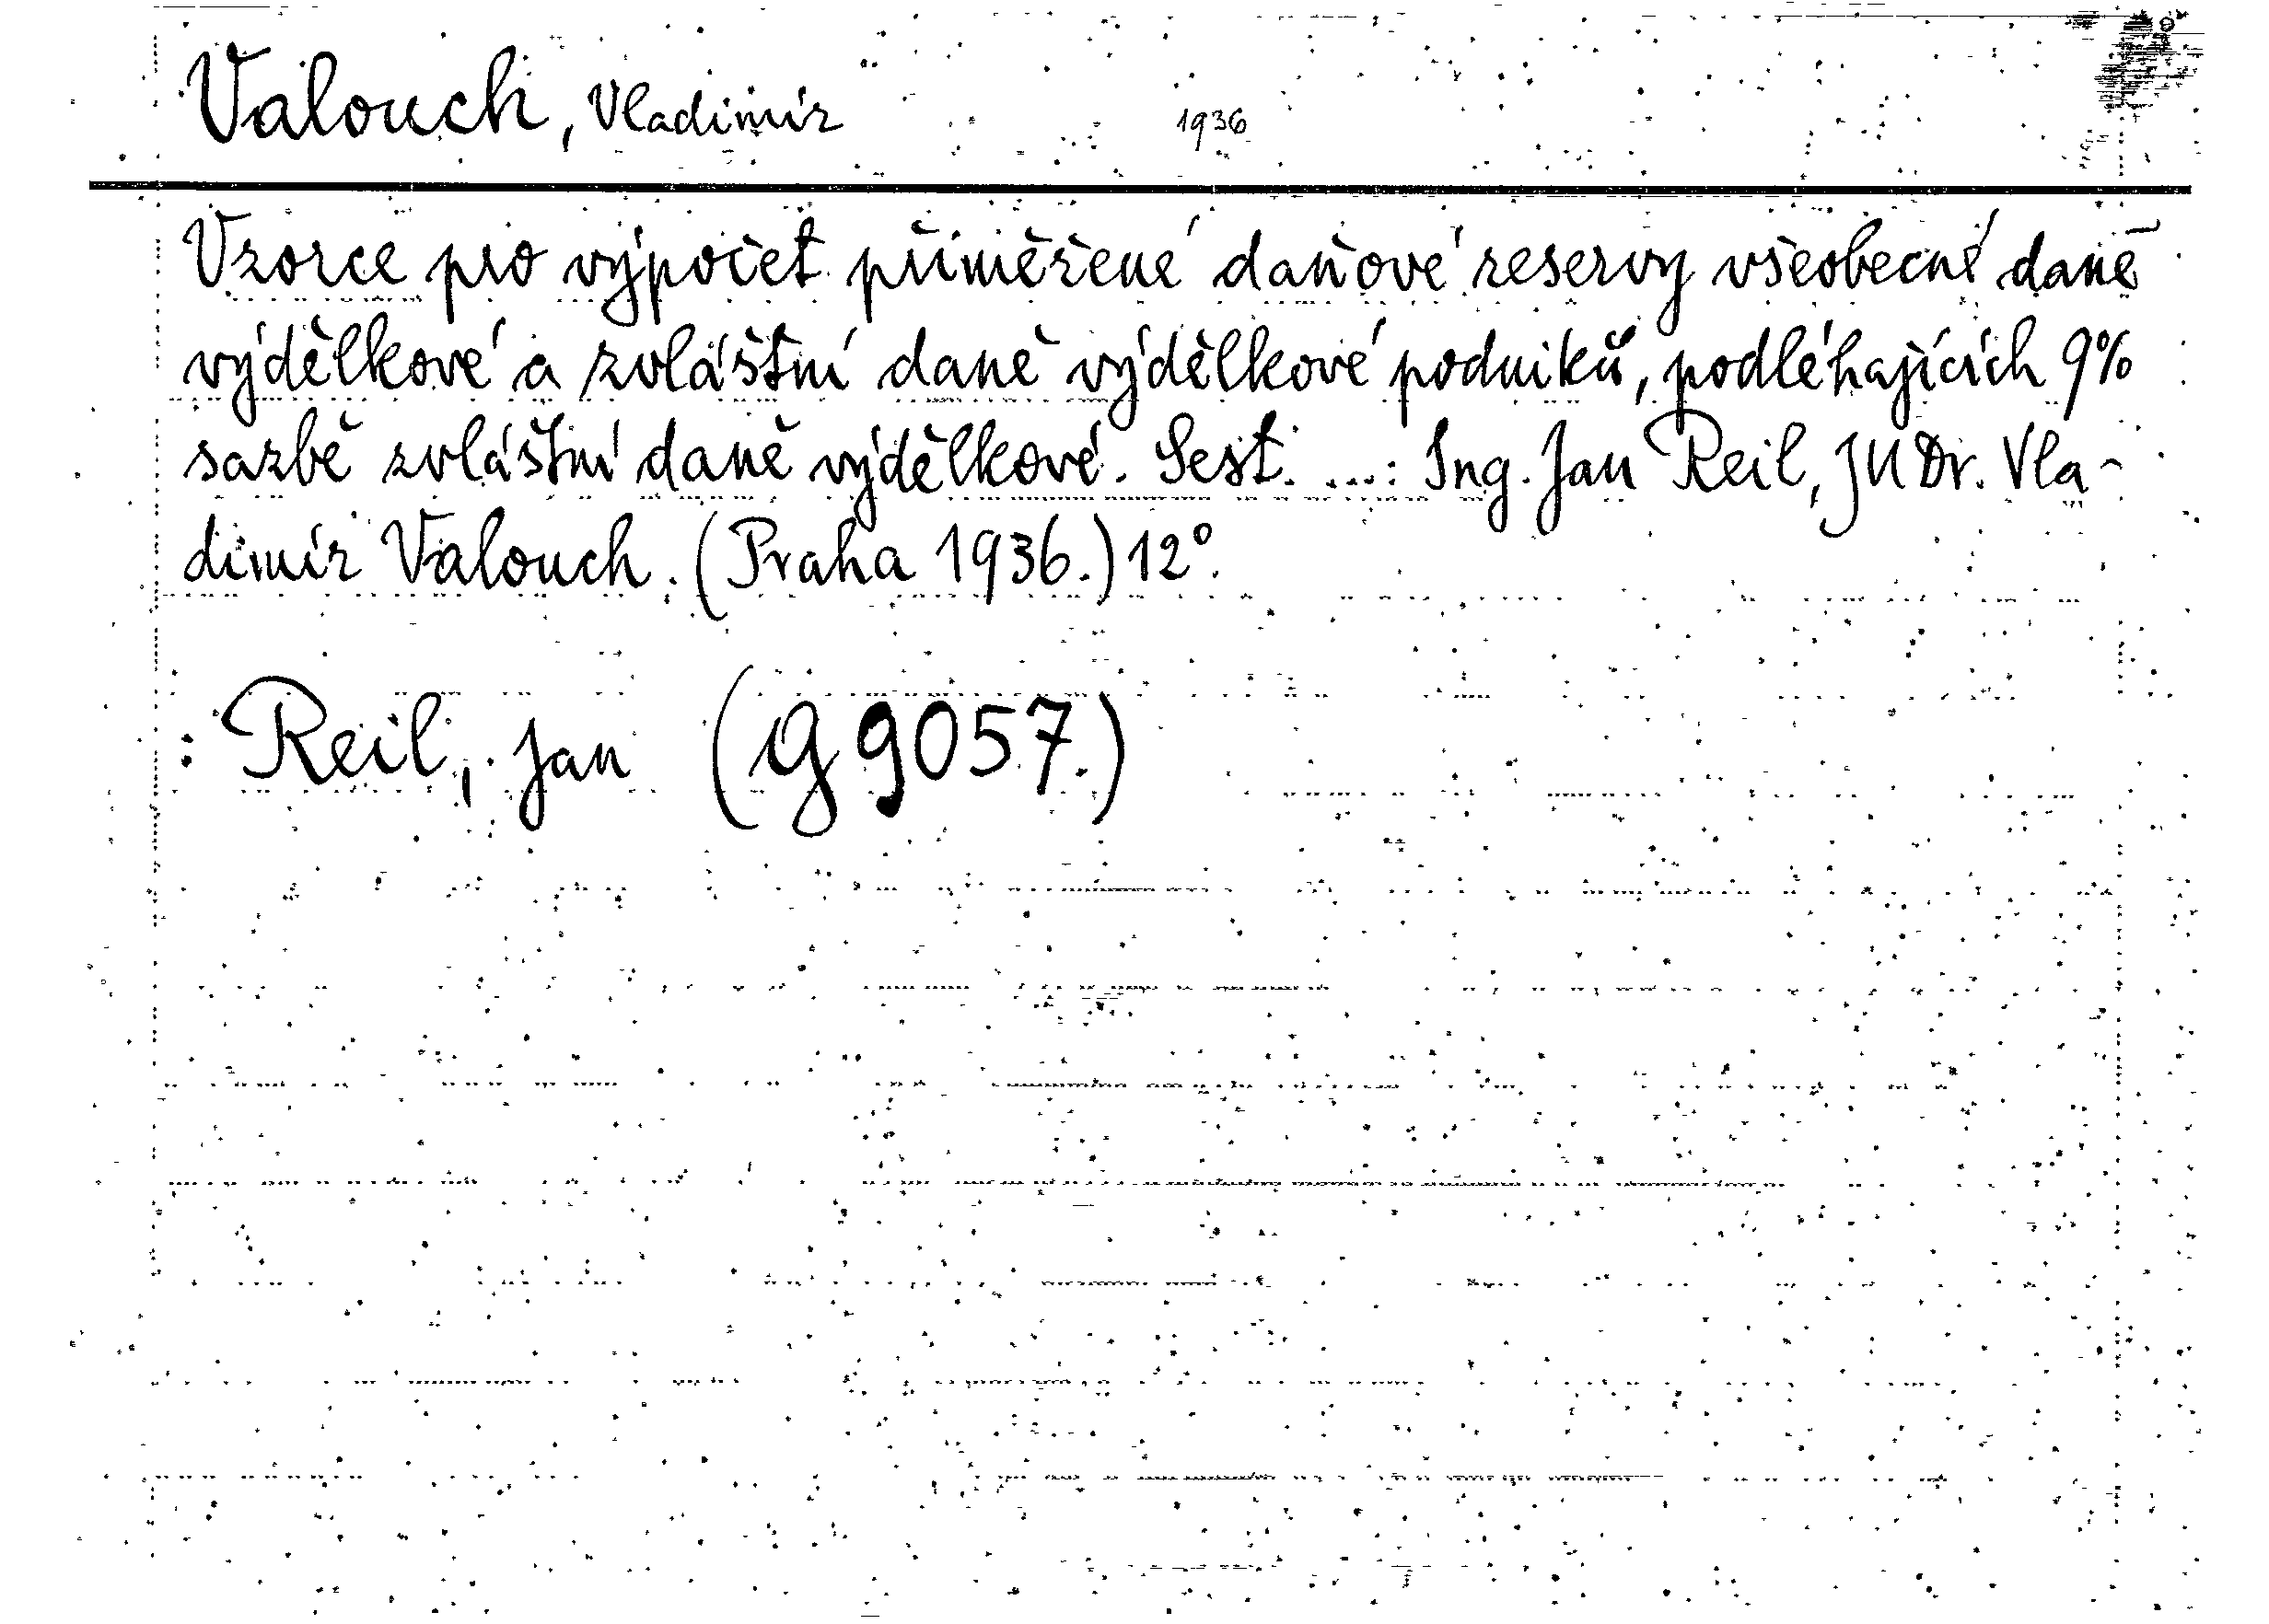 Valouch, Vladimír 1936
Vzorce pro výpočet přiměřené daňové reservy všeobecné daně
výdělkové a zvláštní daně výdělkové podniků, podléhajících 9%
sazbě zvláštní daně výdělkové. Sest. ...: Ing. Jan Reil, JUDr. Vla-
dimír Valouch. (Praha 1936.) 12°.
: Reil, Jan (G 9057.)